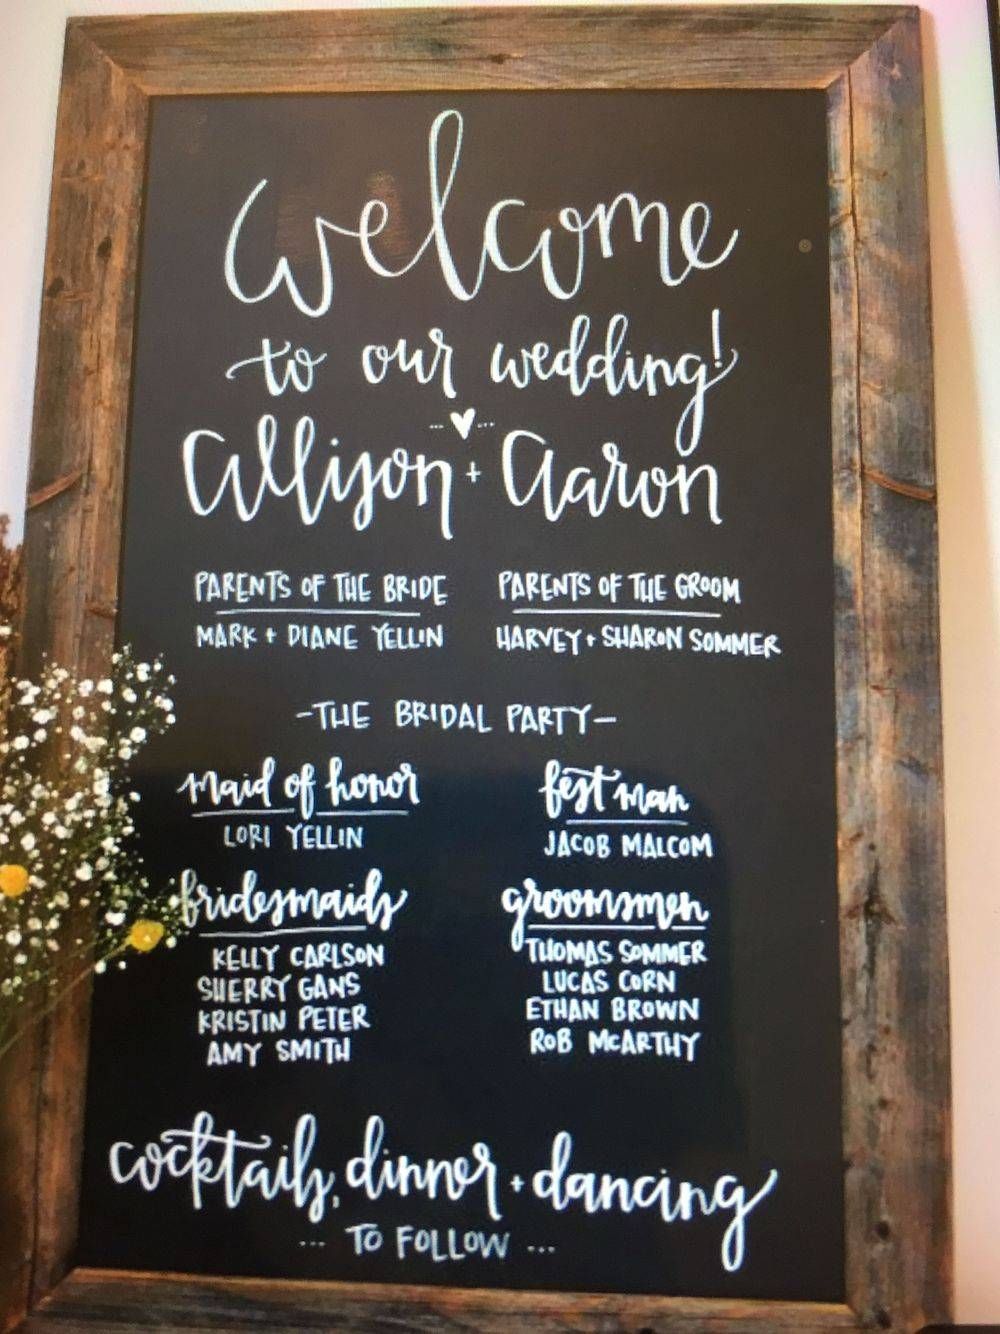 welcome
to our wedding!
... ♥ ...
Allison + Aaron
PARENTS OF THE BRIDE
MARK + DIANE YELLIN
PARENTS OF THE GROOM
HARVEY + SHARON SOMMER
- THE BRIDAL PARTY -
maid of honor
LORI YELLIN
best man
JACOB MALCOM
bridesmaids
KELLY CARLSON
SHERRY GANS
KRISTIN PETER
AMY SMITH
groomsmen
THOMAS SOMMER
LUCAS CORN
ETHAN BROWN
ROB McARTHY
cocktails, dinner + dancing
... TO FOLLOW ...